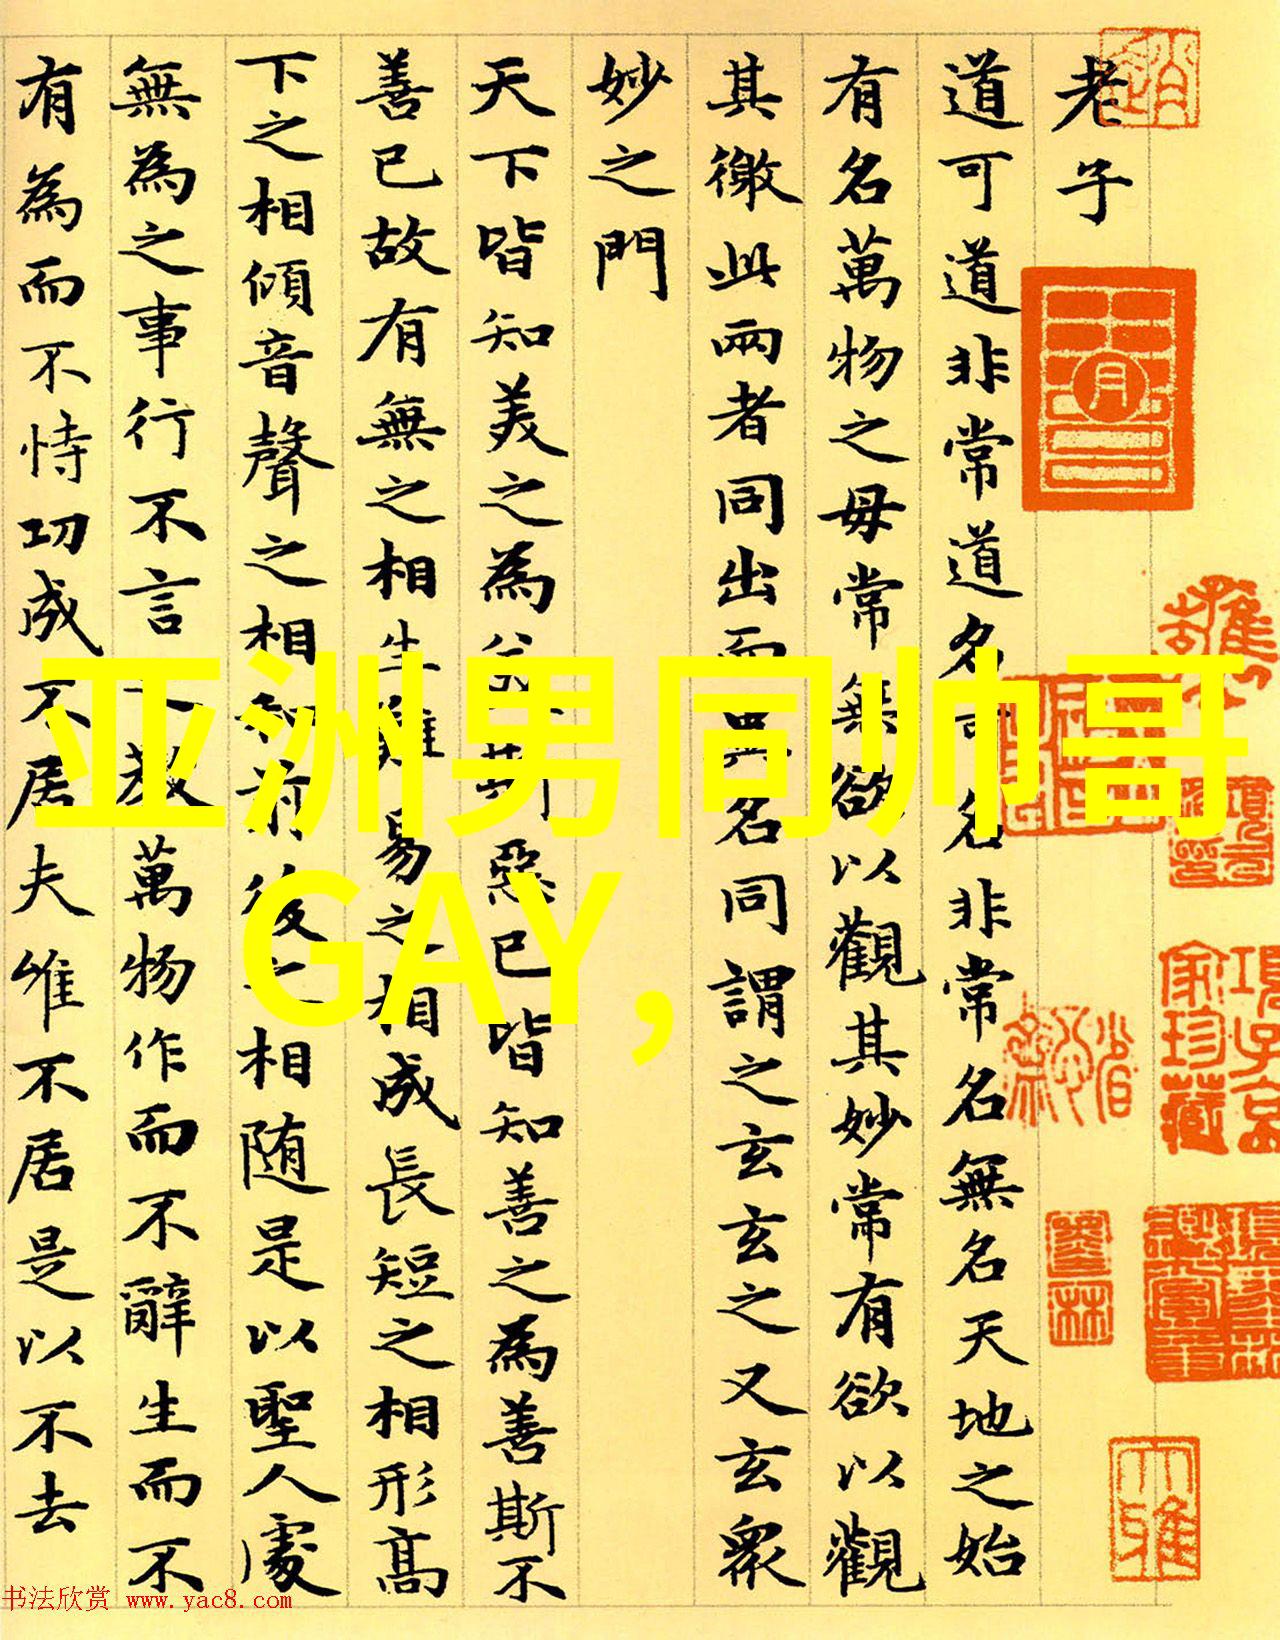 老子
道可道非常道名可名非常名無名天地之始
有名萬物之母常無欲以觀其妙常有欲以觀
其徼此兩者同出而異名同謂之玄玄之又玄衆
妙之門
天下皆知美之為美斯惡已皆知善之為善斯不
善已故有無之相生難易之相成長短之相形高
下之相傾音聲之相和前後之相随是以聖人處
無為之事行不言之教萬物作而不辭生而不
有為而不恃功成不居夫唯不居是以不去
亚洲男同帅哥
GAY,
项子京
家珍藏
书法欣赏 www.yac8.com